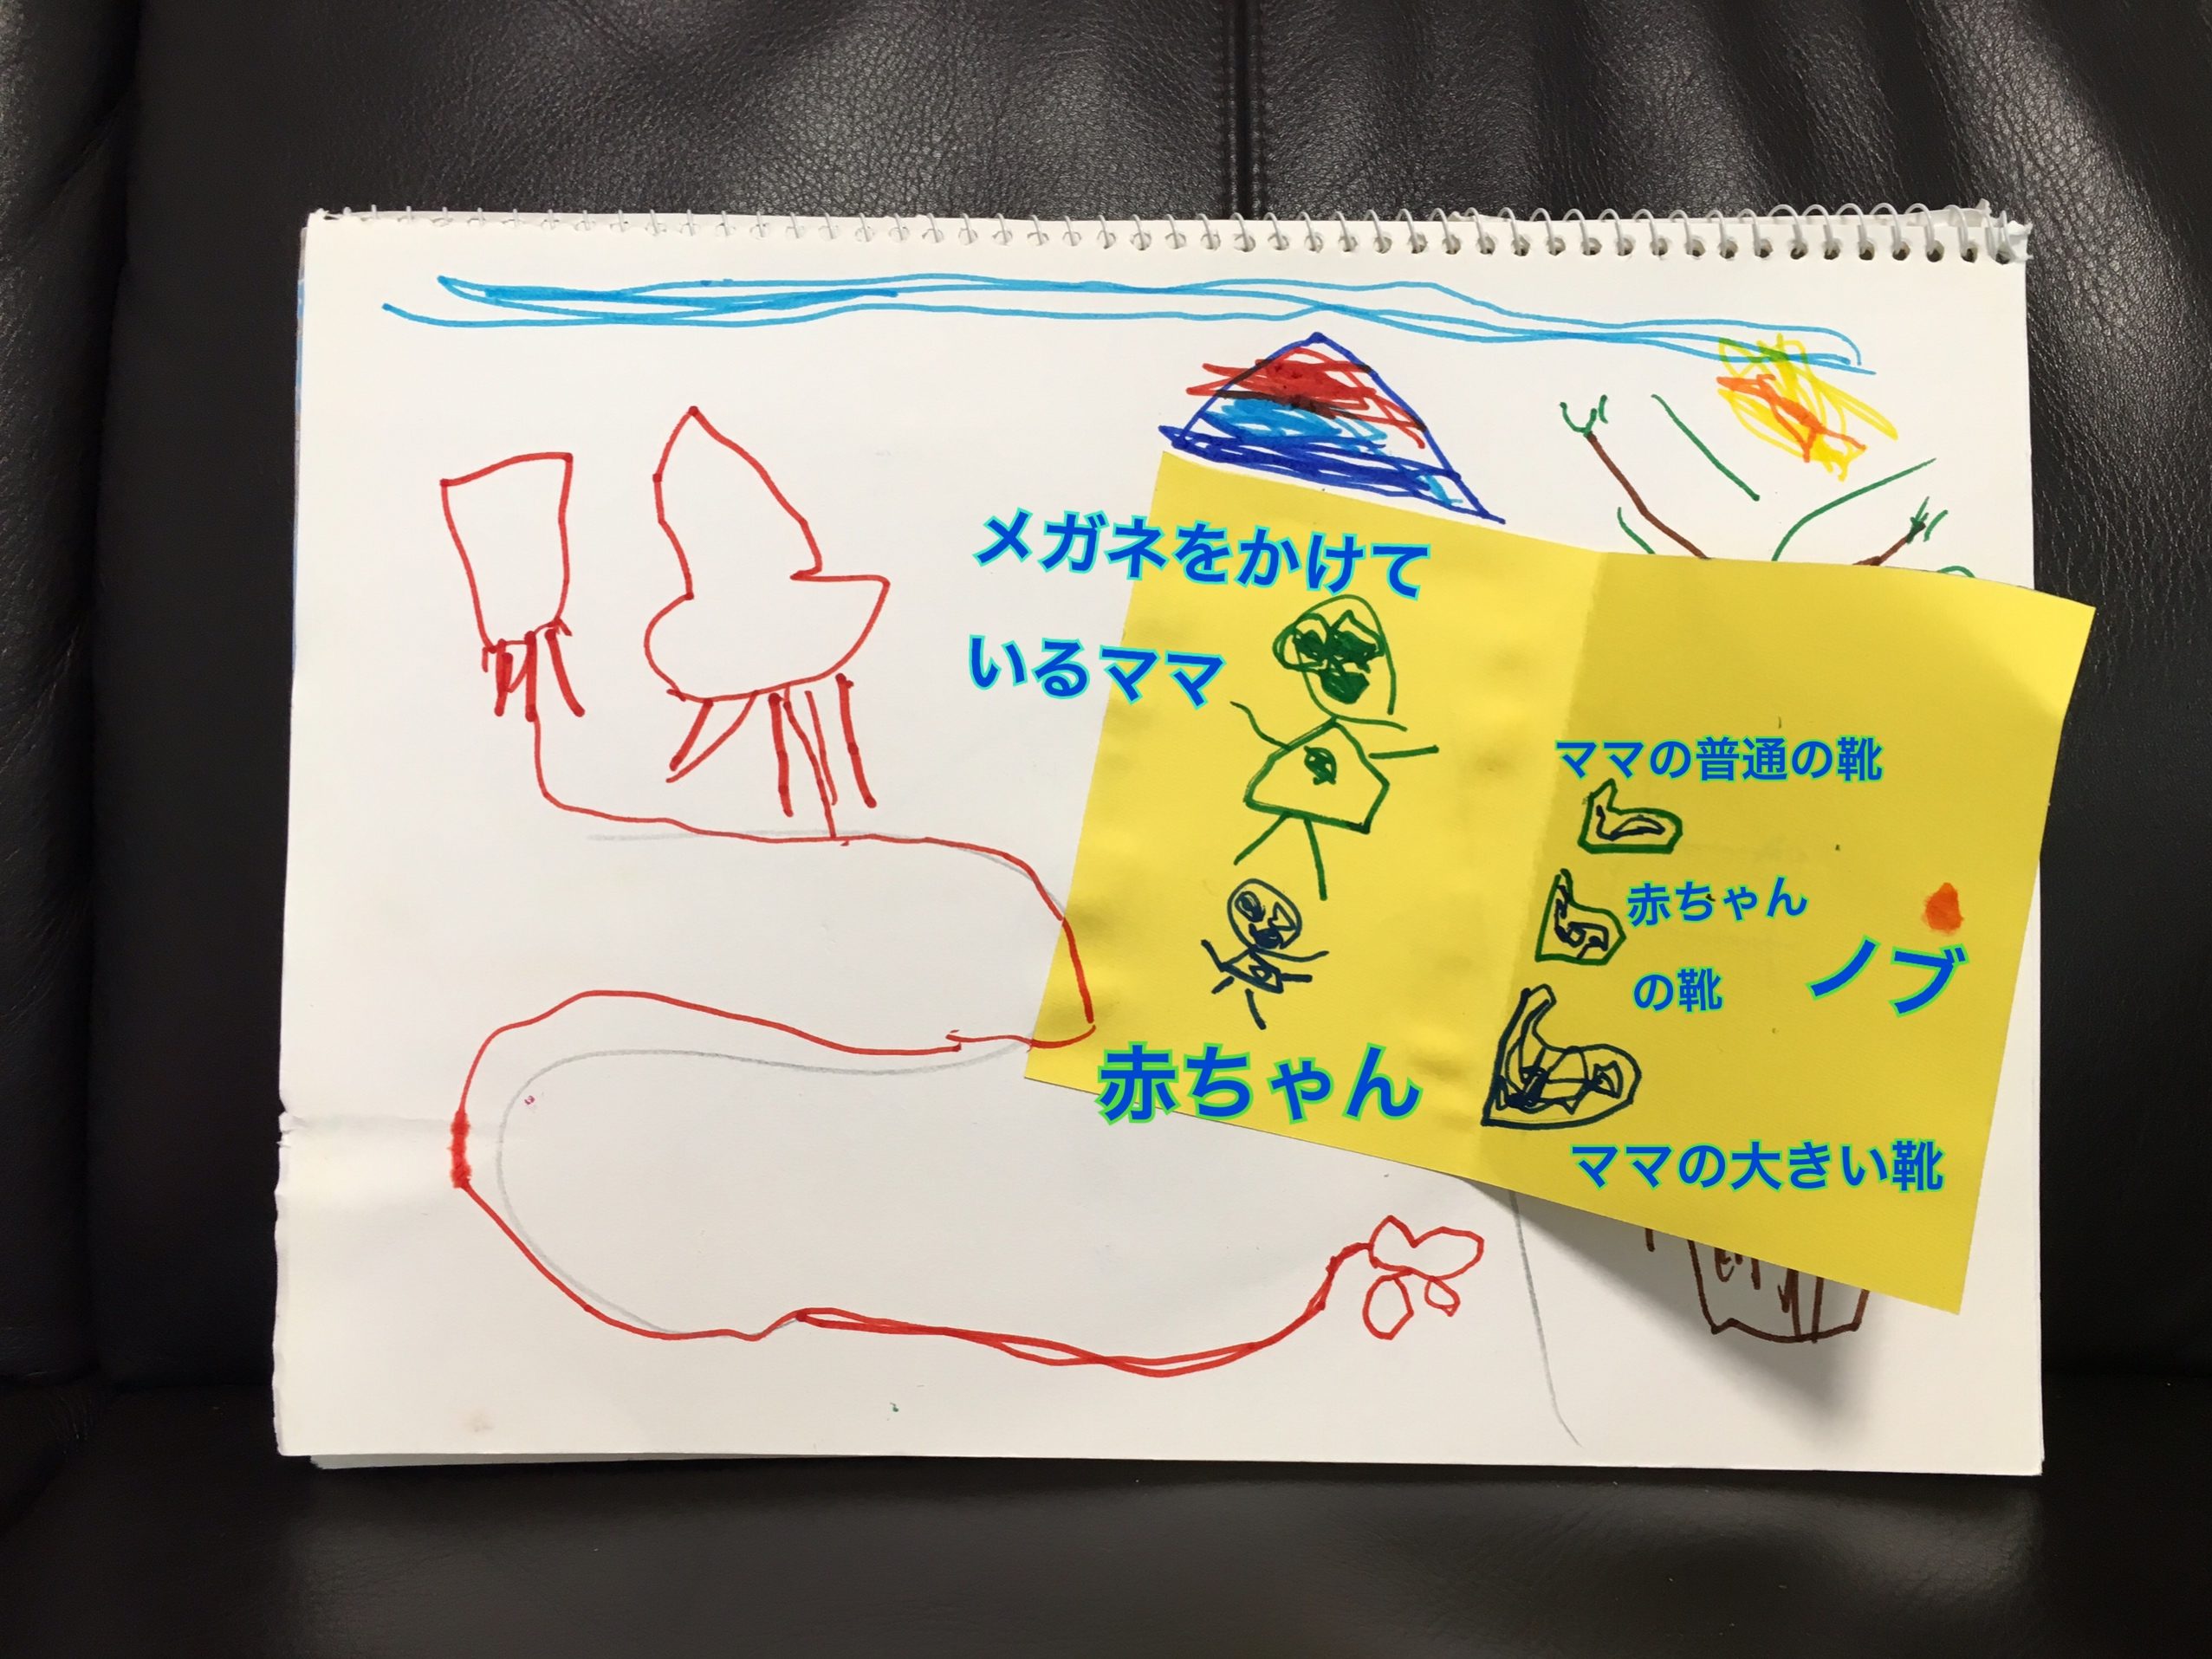 メガネをかけて
いるママ
ママの普通の靴
赤ちゃん
の靴
ノブ
赤ちゃん
ママの大きい靴